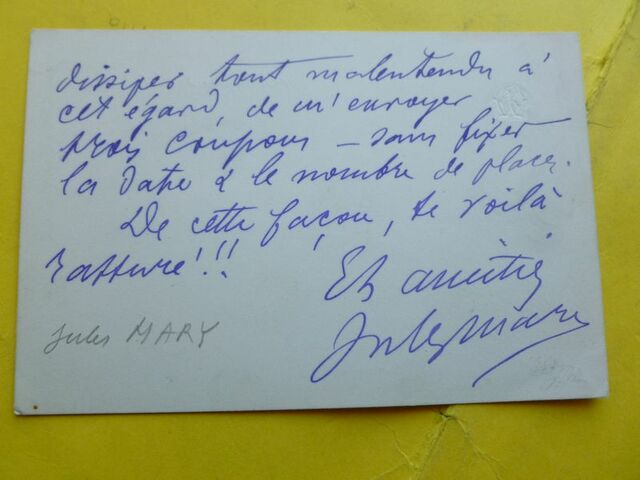 dissiper tout malentendu à
cet égard, de m'envoyer
trois coupons – sans fixer
la date & le nombre de places.
De cette façon, te voilà
rassuré!!!
Et amitié
Jules Mary
Jules MARY